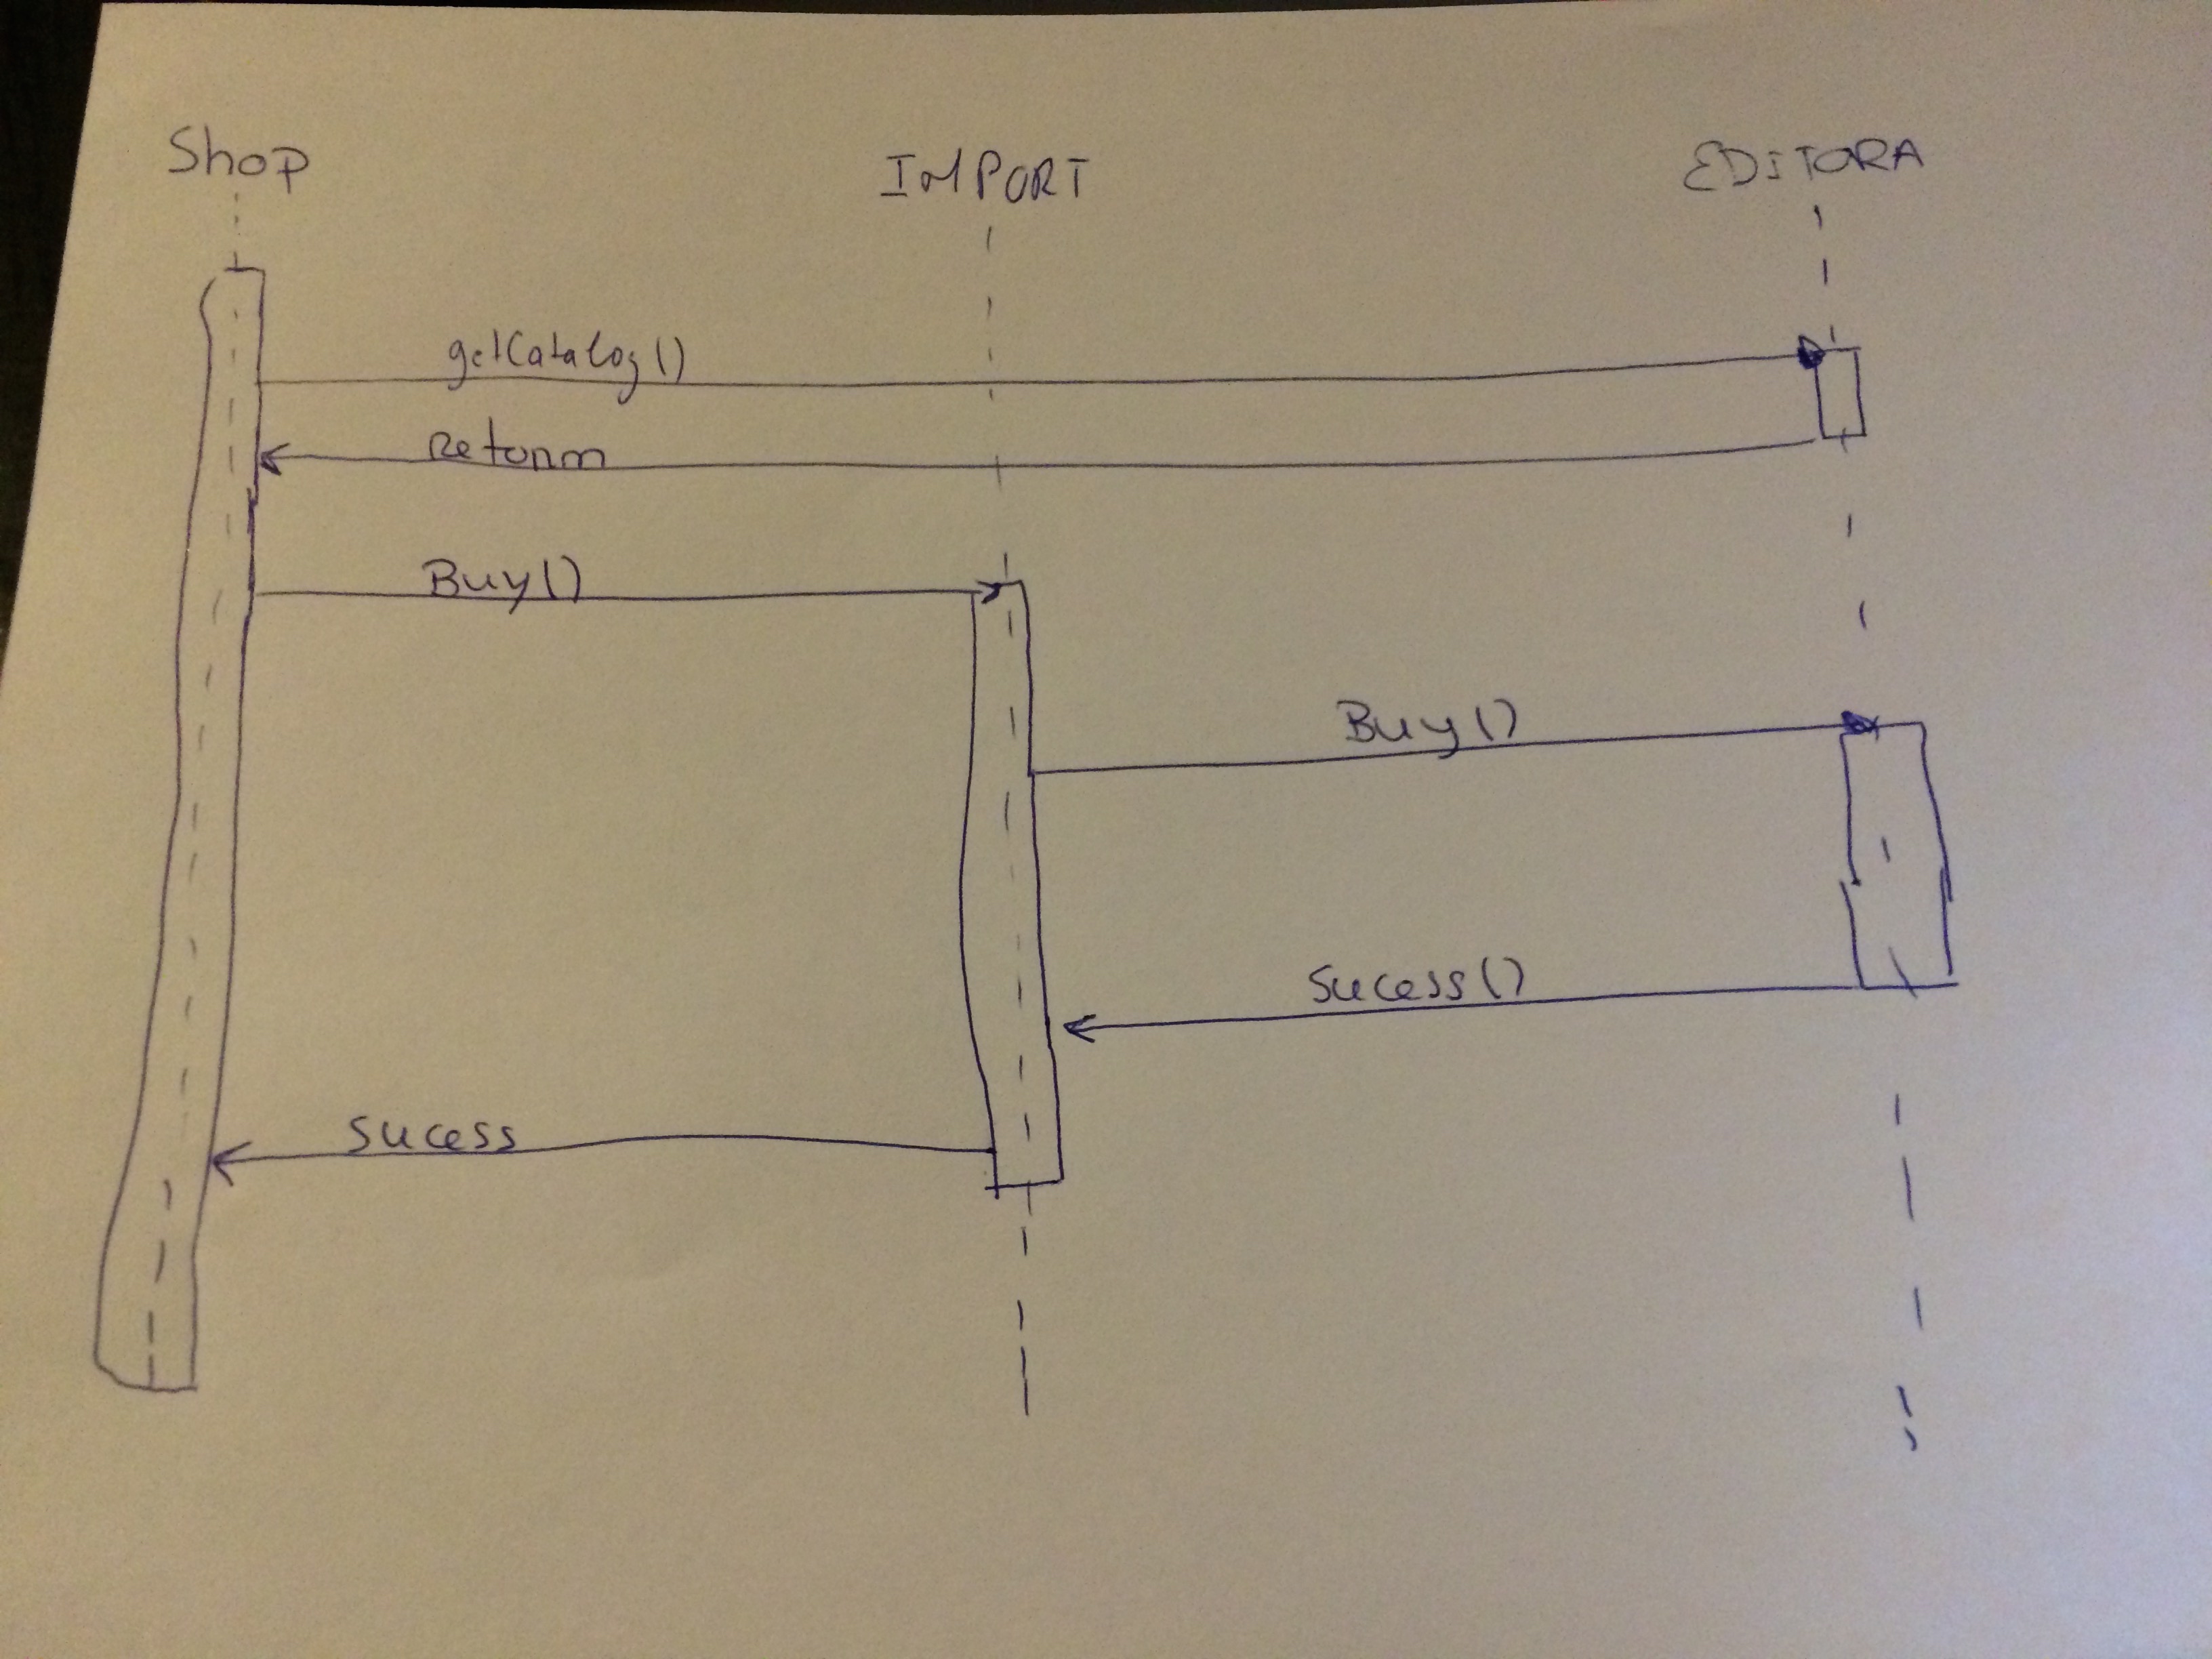 Shop
IMPORT
EDITORA
getCatalog()
Retorn
Buy()
Buy()
Sucess()
Sucess